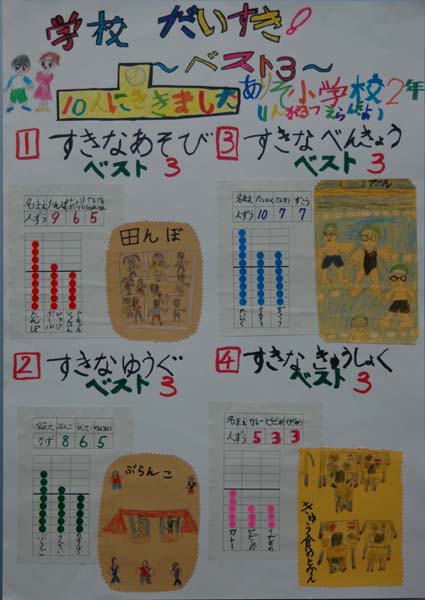 学校 だいすき!
~ベスト3~
10人にききました
ありそ小学校2年
1 すきなあそび
ベスト 3
人ずう 9 6 5
田んぼ
3 すきなべんきょう
ベスト 3
名まえ たいいく さんすう ずこう
人ずう 10 7 7
プール
たいいく
さんすう
ずこう
2 すきなゆうぐ
ベスト 3
かず 8 6 5
ぶらんこ
4 すきなきゅうしょく
ベスト 3
人ずう 5 3 3
カレー
きゅう食のじかん